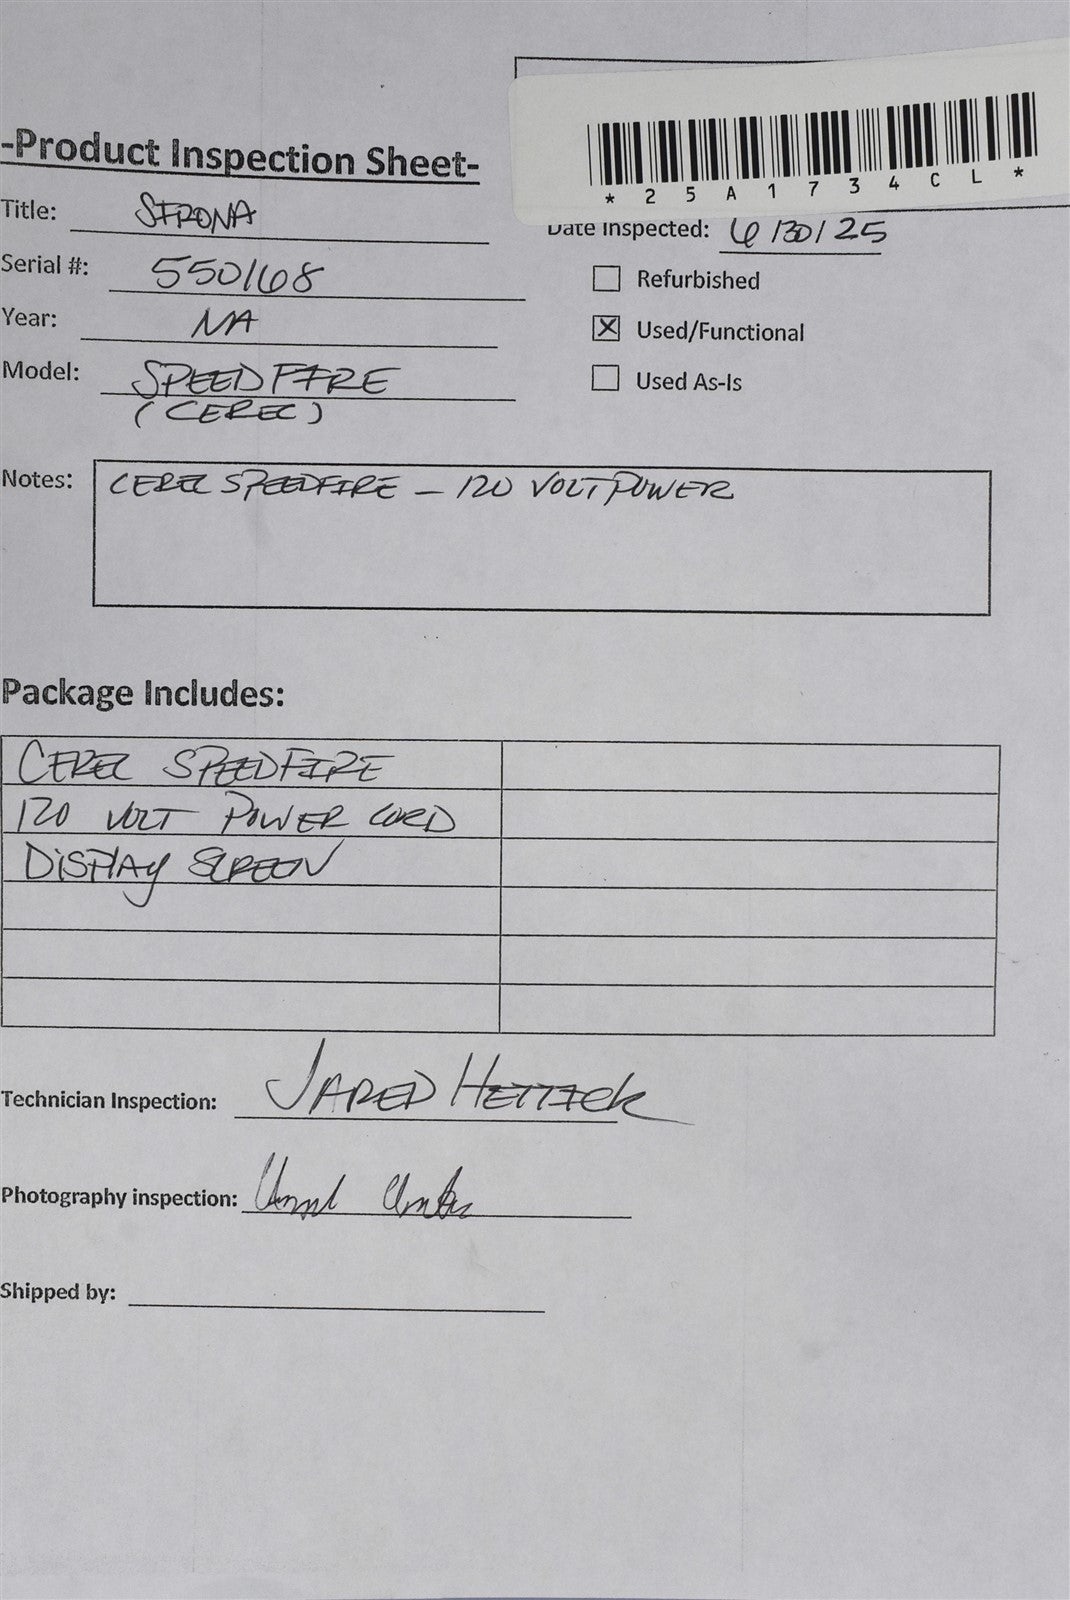 -Product Inspection Sheet-
* 2 5 A 1 7 3 4 C L *
Title: SIRONA
Date Inspected: 6/30/25
Serial #: 550168
Refurbished
Year: NA
☒ Used/Functional
Model: SPEEDFIRE
(CEREC)
Used As-Is
Notes: CEREC SPEEDFIRE – 120 VOLT POWER
Package Includes:
CEREC SPEEDFIRE
120 VOLT POWER CORD
DISPLAY SCREEN
Technician Inspection: JARED HETTICK
Photography inspection:
Shipped by: